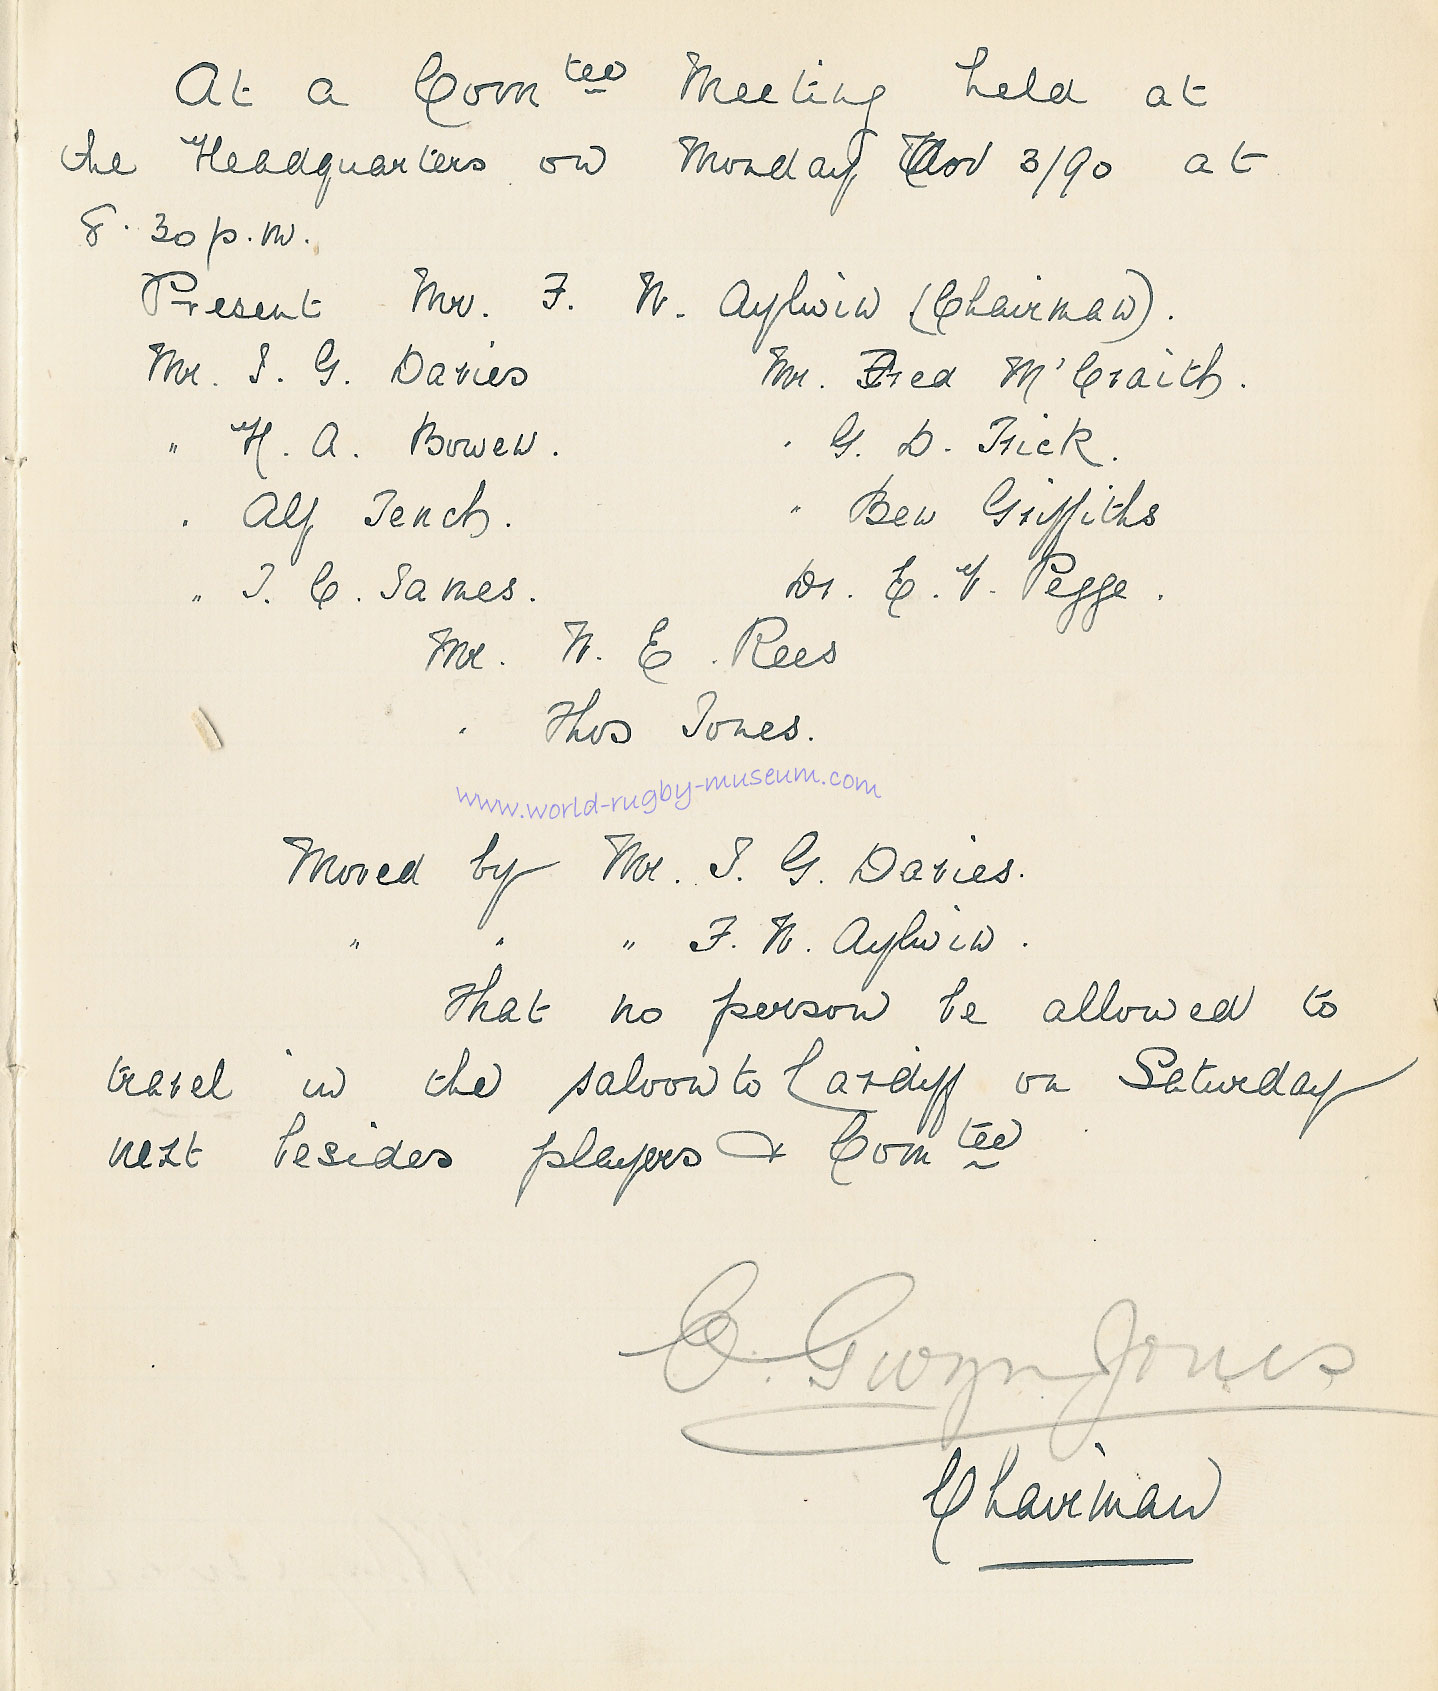 At a Com^tee Meeting held at
the Headquarters on Monday Nov 3/90 at
8.30 p.m.
Present Mr. F. W. Aylwin (Chairman).
Mr. J. G. Davies Mr. Fred M'Craith.
" H. A. Bowen. " G. D. Trick.
" Alf Tench. " Ben Griffiths
" J. C. James. Dr. E. V. Pegge.
Mr. W. E. Rees
" Thos Jones.
www.world-rugby-museum.com
Moved by Mr. J. G. Davies.
" " " F. W. Aylwin.
That no person be allowed to
travel in the saloon to Cardiff on Saturday
next besides players & Com^tee
C. Gwyn Jones
Chairman